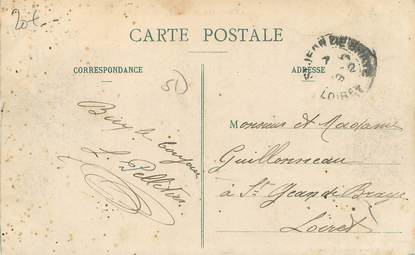 20t
CARTE POSTALE
CORRESPONDANCE
ADRESSE
ST JEAN DE BRAYE
LOIRET
51
Monsieur et Madame
Guillonneau
à St Jean de Braye
Loiret
L. Pelletier